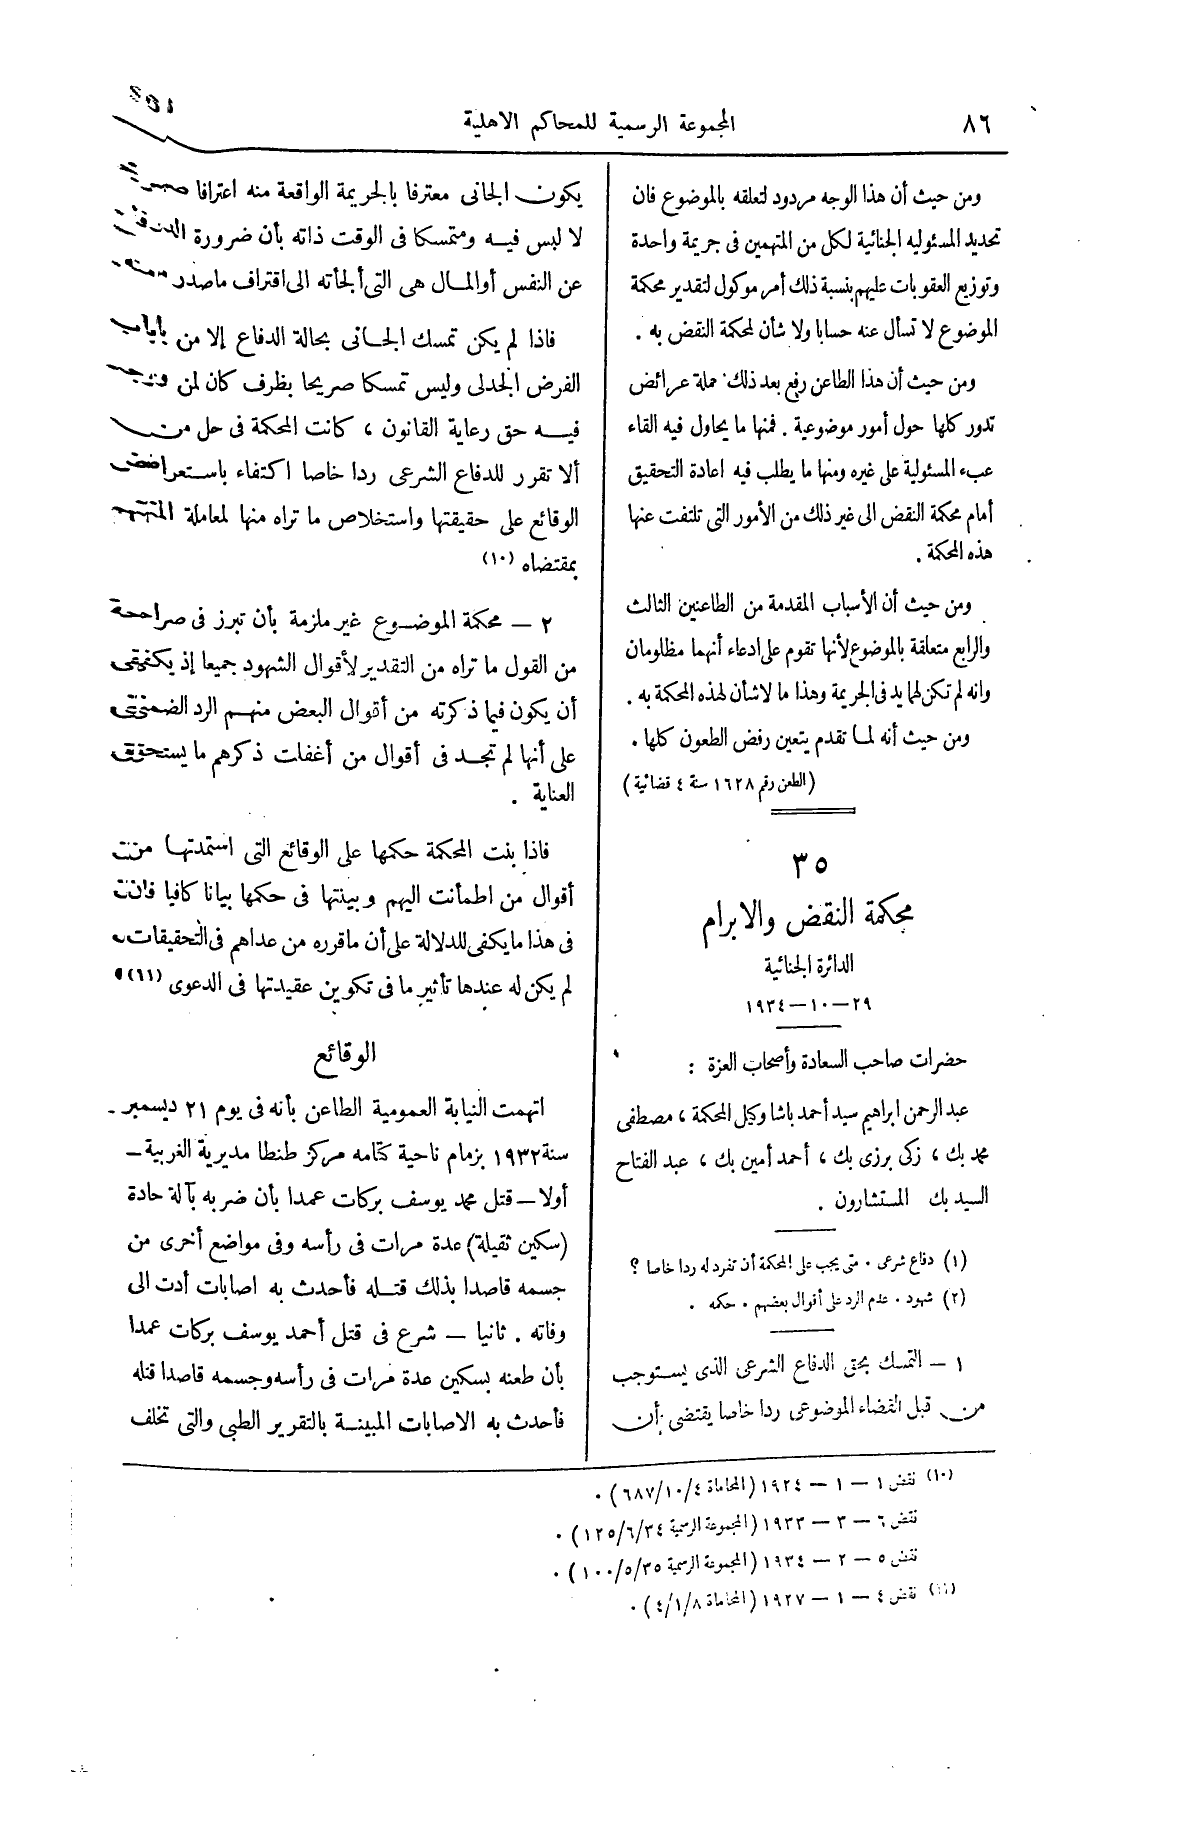 ٨٦
المجموعة الرسمية للمحاكم الاهلية
ومن حيث أن هذا الوجه مردود لتعلقه بالموضوع فان
تحديد المسئوليه الجنائية لكل من المتهمين فى جريمة واحدة
وتوزيع العقوبات عليهم بنسبة ذلك أمر موكول لتقدير محكمة
الموضوع لا تسأل عنه حسابا ولا شأن لمحكمة النقض به .
ومن حيث أن هذا الطاعن رفع بعد ذلك جملة عرائض
تدور كلها حول أمور موضوعية . فمنها ما يحاول فيه القاء
عبء المسئولية على غيره ومنها ما يطلب فيه اعادة التحقيق
أمام محكمة النقض الى غير ذلك من الأمور التى تلتفت عنها
هذه المحكمة .
ومن حيث أن الأسباب المقدمة من الطاعنين الثالث
والرابع متعلقة بالموضوع لأنها تقوم على ادعاء أنهما مظلومان
وانه لم تكن لهما يد فى الجريمة وهذا ما لاشأن لهذه المحكمة به .
ومن حيث أنه لما تقدم يتعين رفض الطعون كلها .
(الطعن رقم ١٦٢٨ سنة ٤ قضائية)
٣٥
محكمة النقض والابرام
الدائرة الجنائية
٢٩ – ١٠ – ١٩٣٤
حضرات صاحب السعادة وأصحاب العزة :
عبد الرحمن ابراهيم سيد أحمد باشا وكيل المحكمة ، مصطفى
محمد بك ، زكى برزى بك ، أحمد أمين بك ، عبد الفتاح
السيد بك المستشارون .
(١) دفاع شرعى . متى يجب على المحكمة أن تفرد له ردا خاصا ؟
(٢) شهود . عدم الرد على أقوال بعضهم . حكمه .
١ – التمسك بحق الدفاع الشرعى الذى يستوجب
من قبل القضاء الموضوعى ردا خاصا يقتضى أن
يكون الجانى معترفا بالجريمة الواقعة منه اعترافا
لا لبس فيه ومتمسكا فى الوقت ذاته بأن ضرورة الدفاع
عن النفس أو المال هى التى ألجأته الى اقتراف ما صدر منه
فاذا لم يكن تمسك الجانى بحالة الدفاع إلا من باب
الفرض الجدلى وليس تمسكا صريحا بظرف كان لمن وجد
فيه حق رعاية القانون ، كانت المحكمة فى حل من
ألا تقرر للدفاع الشرعى ردا خاصا اكتفاء باستعراض
الوقائع على حقيقتها واستخلاص ما تراه منها لمعاملة المتهم
بمقتضاه (١٠)
٢ – محكمة الموضوع غير ملزمة بأن تبرز فى صراحة
من القول ما تراه من التقدير لأقوال الشهود جميعا إذ يكفى
أن يكون فيما ذكرته من أقوال البعض منهم الرد الضمنى
على أنها لم تجد فى أقوال من أغفلت ذكرهم ما يستحق
العناية .
فاذا بنت المحكمة حكمها على الوقائع التى استمدتها من
أقوال من اطمأنت اليهم وبينتها فى حكمها بيانا كافيا فان
فى هذا ما يكفى للدلالة على أن ماقرره من عداهم فى التحقيقات
لم يكن له عندها تأثير ما فى تكوين عقيدتها فى الدعوى (١١)
الوقائع
اتهمت النيابة العمومية الطاعن بأنه فى يوم ٢١ ديسمبر
سنة ١٩٣٢ بزمام ناحية كتامه مركز طنطا مديرية الغربية –
أولا – قتل محمد يوسف بركات عمدا بأن ضربه بآلة حادة
(سكين ثقيلة) عدة مرات فى رأسه وفى مواضع أخرى من
جسمه قاصدا بذلك قتله فأحدث به اصابات أدت الى
وفاته . ثانيا – شرع فى قتل أحمد يوسف بركات عمدا
بأن طعنه بسكين عدة مرات فى رأسه وجسمه قاصدا قتله
فأحدث به الاصابات المبينة بالتقرير الطبى والتى تخلف
(١٠) نقض ١ – ١ – ١٩٢٤ (المحاماة ٤/١٠/٦٨٧) .
نقض ٦ – ٣ – ١٩٣٣ (المجموعة الرسمية ٣٤/٦/١٢٥) .
نقض ٥ – ٢ – ١٩٣٤ (المجموعة الرسمية ٣٥/٥/١٠٠) .
(١١) نقض ٤ – ١ – ١٩٢٧ (المحاماة ٨/١/٤) .